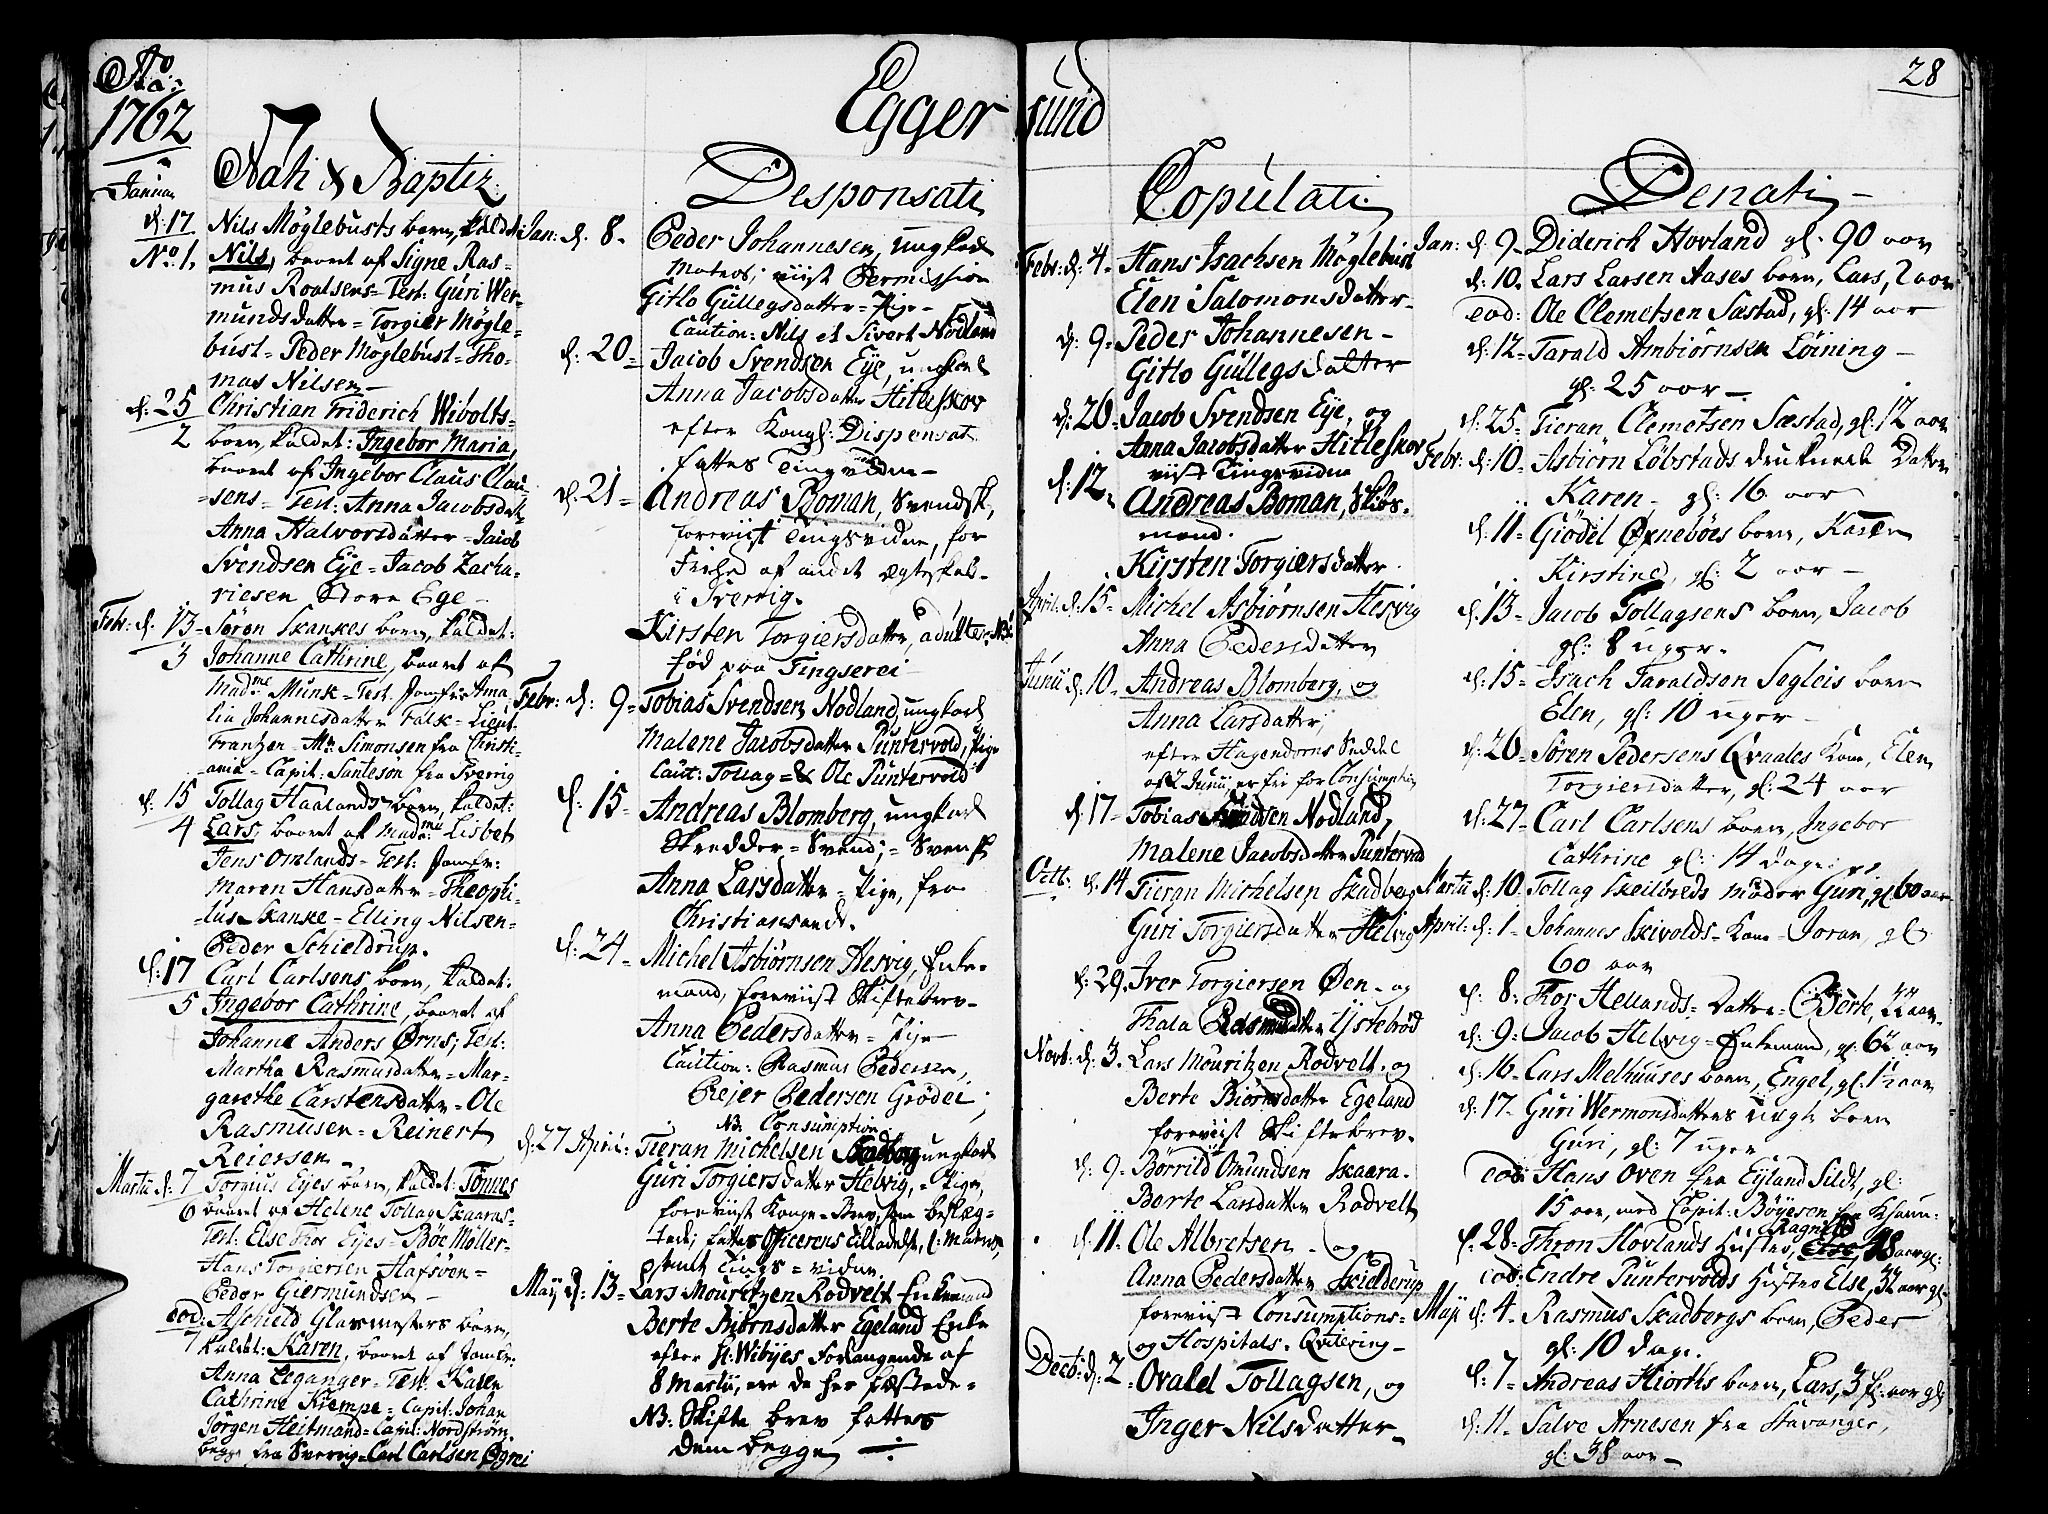 Ao
1762
Egger
sund
28
Nati & Baptiz:
Januar
d: 17
No. 1.
Nils Möglebusts barn, kaldet:
Nils, baaret af Signe Ras=
mus Roalsens = Test: Guri Wer=
mundsdatter = Torgier Mögle=
bust = Peder Möglebust = Tho=
mas Nilsen –
d: 25
2
Christian Friderich Wibolts=
barn, kaldet: Ingebor Maria,
baaret af Ingebor Claus Clau=
=sens = Test: Anna Jacobsdatt.
Anna Halvorsdatter = Jacob
Svendsen Eye = Jacob Zacha=
riesen Store Ege –
Febr: d: 13
3
Søren Skanskes barn, kaldet:
Johanne Cathrine, baaret af
Madme Munk = Test. Jomfr: Ama
lia Johannesdatter Falk = Lieut.
Frantzen = Mr. Simonsen fra Christi=
ania = Capit: Santeson fra Sverrig
d: 15
4
Tollag Haalands barn, kaldet:
Lars, baaret af Madme: Lisbet
Jens Omlands = Test: Jomfr:
Maren Hansdatter = Theophi=
lus Skanke = Elling Nilsen =
Peder Schieldrup.
d: 17
5
Carl Carlsens barn, kaldet:
Ingebor Cathrine, baaret af
Johanne Anders Ørns; Test:
Martha Rasmusdatter = Mar=
garethe Carstensdatter = Ole
Rasmusen = Reinert
Reiersen –
Martii d: 7
6
Tormus Eyes barn, kaldet: Tönnes
baaret af Helene Tollag Skaaras =
Test: Else Thor Eyes = Böe Möller =
Hans Torgiersen Hafsöen =
Peder Giermundsen –
eod:
7
Aschield Glasmesters barn,
kaldet: Karen, baaret af Jomfr:
Anna Leganger = Test: Karen
Cathrine Krempe = Capit: Johan
Jörgen Heitmand = Capit: Nordström
begge fra Sverrig = Carl Carlsen Øgrei
Desponsati
Jan: d. 8 –
Peder Johannesen, ungkarl
Matros, viist Permission
Gitlo Gullegsdatter = Pige –
Caution: Nils et Sivert Nodland
d: 20 =
Jacob Svendsen Eye, ungkarl
Anna Jacobsdatter Hitleskor
efter Kongl: Dispensat.
fattes Tingsvidne –
d: 21 =
Andreas Boman, Svendsk,
foreviist Tingsvidne, for
Frihed af andet Egteskab –
i Sverrig.
Kirsten Torgiersdatter, adulter NB:
fød paa Tingserei –
Febr: d: 9 –
Tobias Svendsen Nodland, ungkarl
Malene Jacobsdatter Puntervold, Pige
Caut: Tollag = & Ole Puntervold
d: 15 =
Andreas Blomberg, ungkarl
Skredder = Svend; = Svensk
Anna Larsdatter = Pige, fra
Christiansand.
d: 24 =
Michel Asbiörnsen Hesvig, Enke=
mand, foreviist Skiftebrev –
Anna Pedersdatter = Pige
Caution: Rasmus Pedersen,
Reier Pedersen Grödei,
NB: Consumption
d: 27 April:
Tieran Michelsen Skadberg ungkarl
Guri Torgiersdatter Helvig, = Pige,
foreviist Konge = Brev, som beslæg=
tede; fattes Officerens Tilladelse,
samt Tings = vidne.
May d: 13 =
Lars Mouritzen Rodvelt Enkemand
Berte Biörnsdatter Egeland Enke
efter H: Wibyes Forlangende af
8 Martii, ere de her fæstede =
NB: Skifte brev fattes
dem begge –
Copulati
Febr: d: 4 –
Hans Isachsen Möglebust
Elen Salomonsdatter –
d: 9 –
Peder Johannesen –
Gitlo Gullegsdatter
d: 20 –
Jacob Svendsen Eye, og
Anna Jacobsdatter Hitleskor
viist Tingsvidne
d: 12 =
Andreas Boman, Skibs=
mand.
Kirsten Torgiersdatter
April. d: 15 –
Michel Asbiörnsen Hesvig
Anna Pedersdatter
Junii d: 10 –
Andreas Blomberg, og
Anna Larsdatter,
efter Hagendorns Seddel
af 7 Junii, er fri for Consumption
d: 17 –
Tobias Svendsen Nodland,
Malene Jacobsdatter Puntervold
Octb: d: 14
Tieran Michelsen Skadberg
Guri Torgiersdatter Helvig
d: 29.
Iver Torgiersen Øen – og
Thala Rasmusdatter Ystebröd
Novb: d: 3.
Lars Mouritzen Rodvelt – og
Berte Biörnsdatter Egeland
foreviist Skiftebrev.
d: 9 –
Börrild Omundsen Skaara –
Berte Larsdatter Rodvelt
d: 11 –
Ole Albretsen – og
Anna Pedersdatter Skielderup
foreviist Consumptions=
og Hospitals = Qvitering –
Decb: d: 2 –
Ovald Tollagsen, og
Inger Nilsdatter –
Denati –
Jan: d: 9 –
Diderich Hovland gl: 90 aar
d: 10.
Lars Larsen Aases barn, Lars, 2 aar
eod:
Ole Clemetsen Sæstad, gl: 14 aar
d: 12 =
Tarald Ambiörnsen Löining –
gl: 25 aar –
d: 25 –
Tieran Clemetsen Sæstad, gl: 12 aar
Febr: d: 10 –
Asbiörn Löbstads druknede Datter
Karen – gl: 16 aar
d: 11 –
Giödel Øxneböes barn, Karen
Kirstine, gl: 2 aar –
d: 13 –
Jacob Tollagsens barn, Jacob
gl: 8 uger –
d: 15 –
Isach Taraldsen Segleis barn
Elen, gl: 10 uger –
d: 20 –
Søren Pedersens Qvaales Kone, Elen
Torgiersdatter, gl: 24 aar
d: 27 –
Carl Carlsens barn, Ingebor
Cathrine gl: 14 dage
Martii d: 10 –
Tollag Skeilbreds moder Guri, gl: 60 aar
April: d: 1 –
Johannes Skivolds = Kone = Joran, gl
60 aar
d: 8 –
Thor Hellands = Datter = Berte, 22 aar –
d: 9 –
Jacob Helvig = Enkemand, gl: 62 aar
d: 16 –
Lars Melhuuses barn, Engel, gl: 1½ aar
d: 17 –
Guri Wermonsdatters uægte barn
Guri, gl: 7 uger
eod:
Hans Oven fra Eyland Sildt, gl:
15 aar, med Capit: Böyesen
d: 28 –
Thron Hovlands Hustro, Ragnild 38 aar gl:
eod:
Endre Puntervolds Hustro Else, 32 aar gl –
May d: 4 –
Rasmus Skadbergs barn, Peder
gl: 10 dage.
d: 7 –
Andreas Hiorths barn, Lars, 3 fl: aar gl
d: 11 –
Salve Arnesen fra Stavanger,
gl: 38 aar –